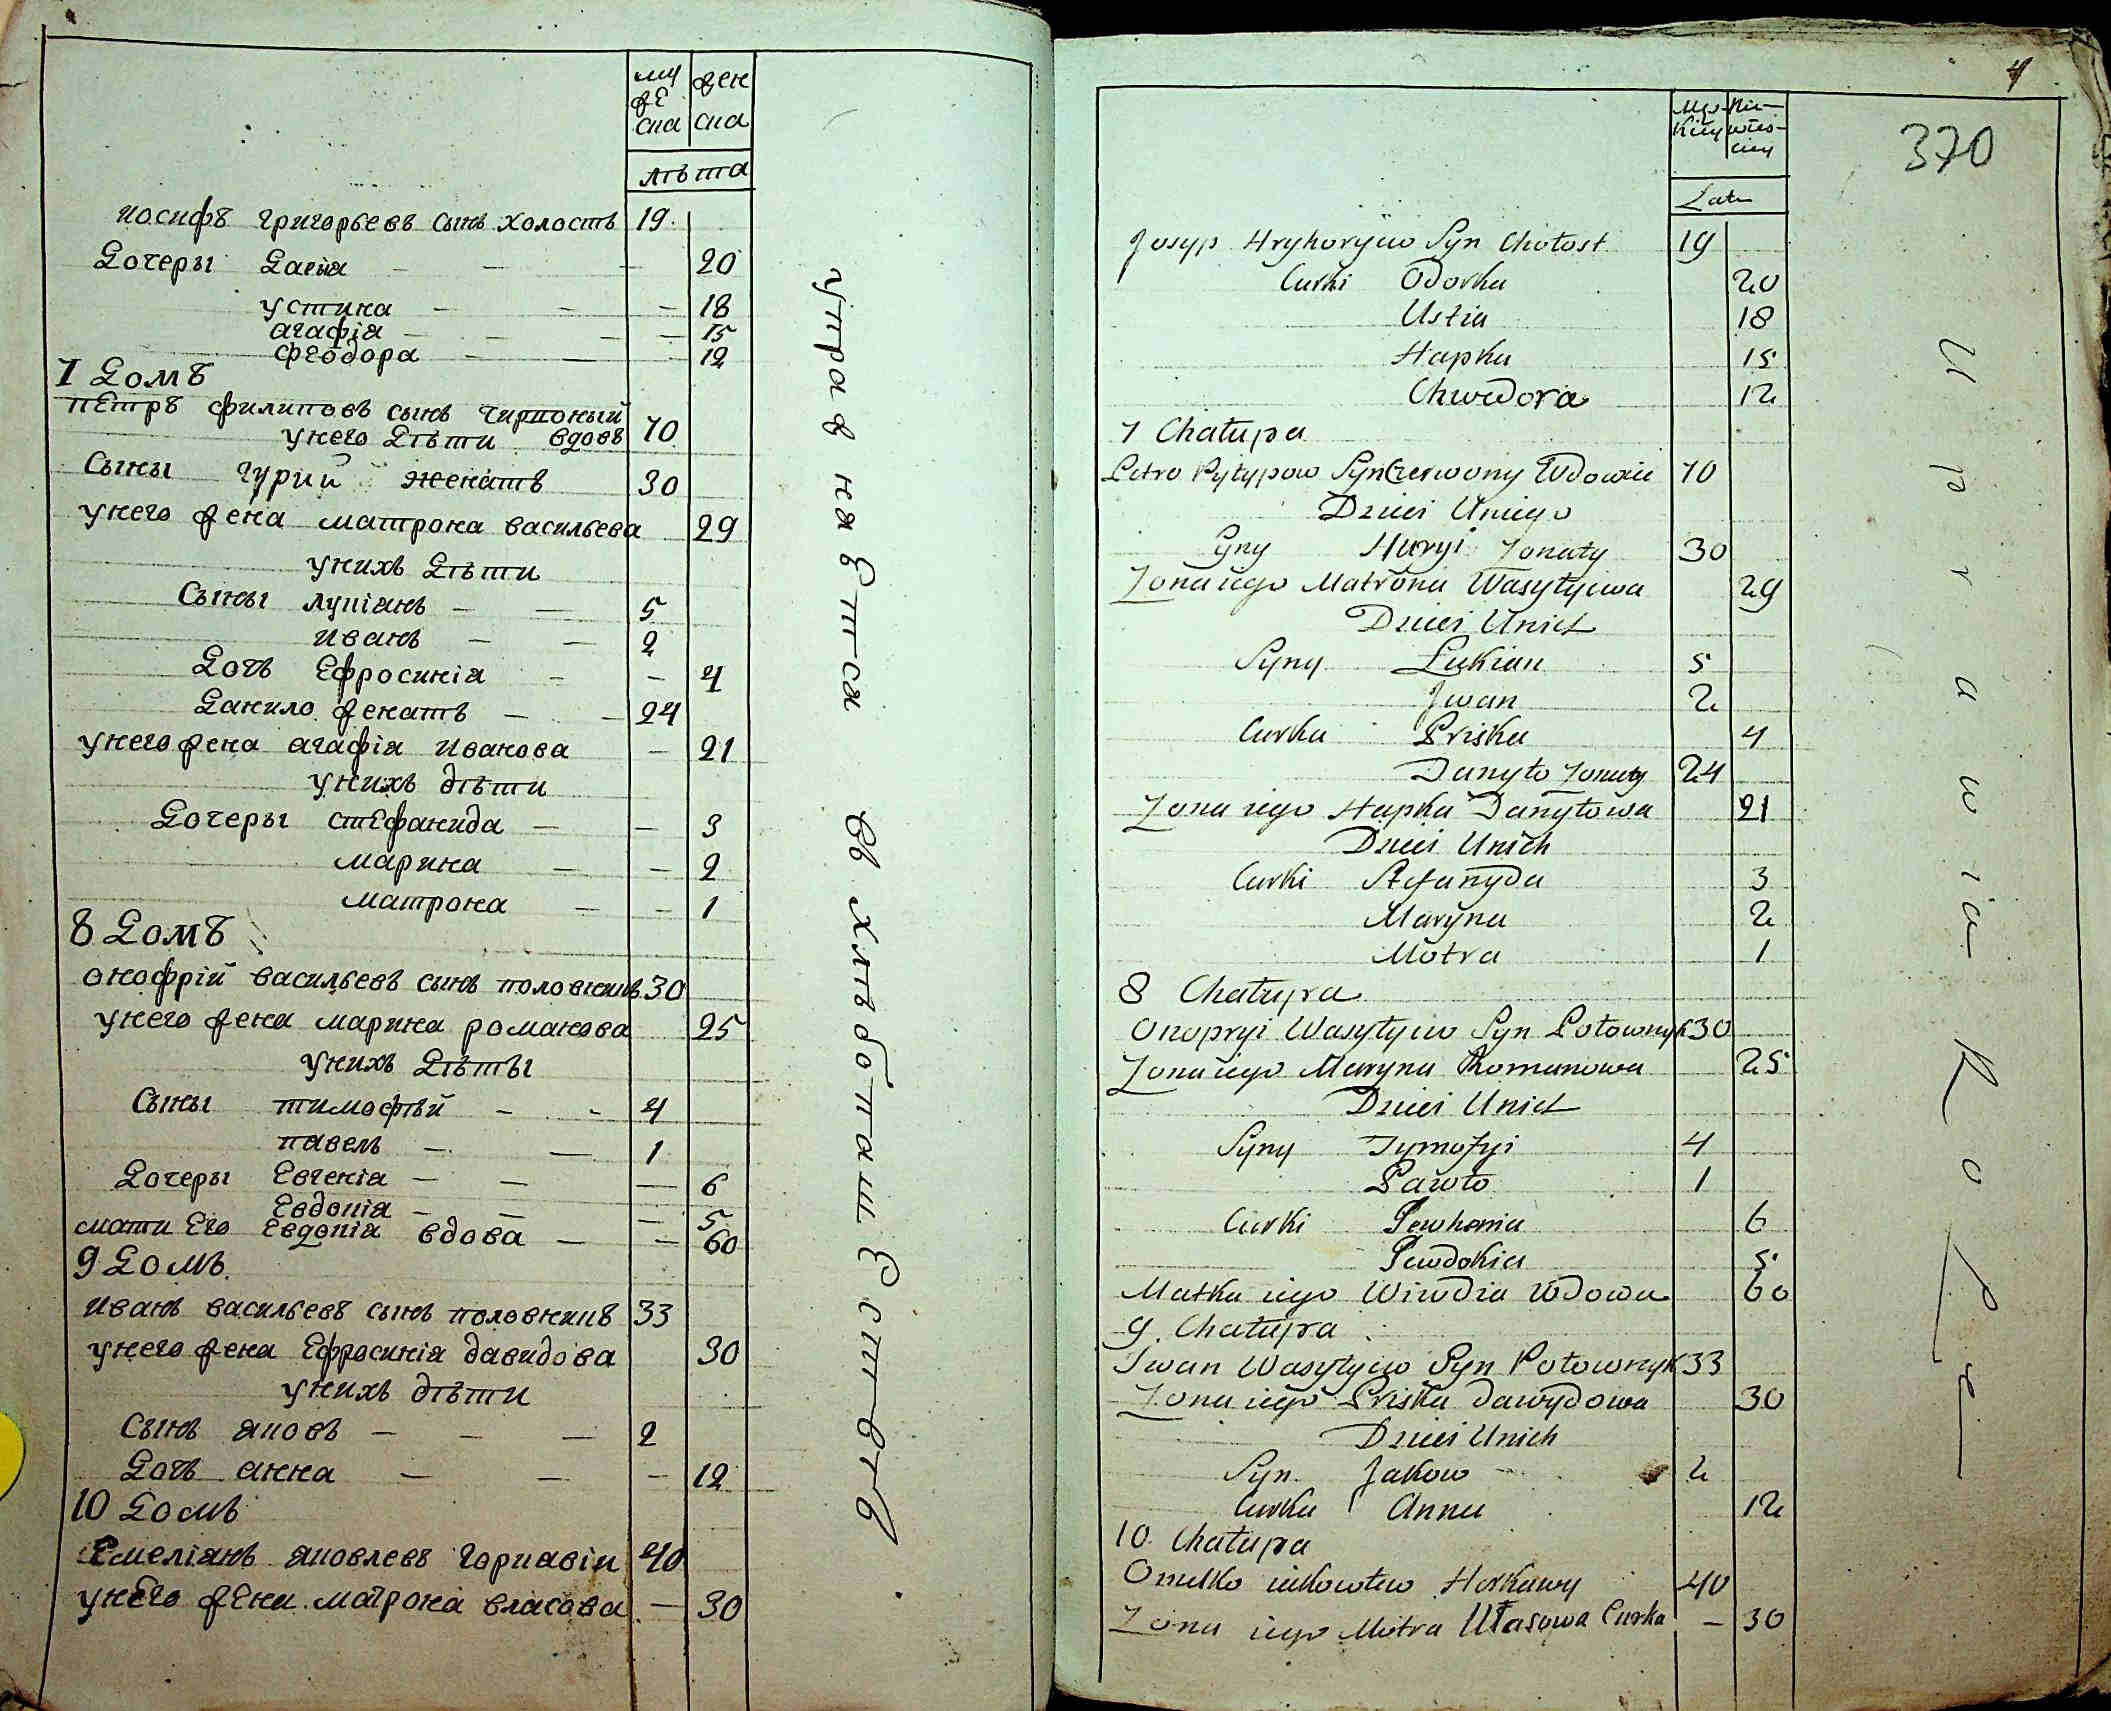 му
же
ска
жен
ска
лѣта
иосифъ григорьевъ сынъ холостъ 19
Дочеры 20
устина — — — 18
агафія — — — 15
феодора — — 12
7 Домъ
петръ филиповъ сынъ
унего Дѣти вдовъ 70
Сыны гурий женатъ 30
унего жена матрона васильева 29
унихъ Дѣти
Сыны лукіанъ — — 5
иванъ — — 2
Дочь Ефросинія — — 4
Данило женатъ — — 24
унего жена агафія иванова — 21
унихъ дѣти
Дочеры стефанида — — 3
марина — — 2
матрона — — 1
8 Домъ
онофрій васильевъ сынъ половникъ 30
унего жена марина романова 25
унихъ Дѣты
Сыны тимофѣй — - 4
павелъ — — 1
Дочеры Евгенія — — — 6
Евдокія — — — 5
мати Его Евдокія вдова — — 60
9 Домъ
иванъ васильевъ сынъ половникъ 33
унего жена Ефросинія давидова 30
унихъ дѣти
Сынъ яковъ — — — 2
Дочь анна — — — 12
10 Домъ
Емеліанъ яковлевъ горкавій 40
унего жена матрона власова — 30
упражняется въ хлѣбопашествѣ
4
370
Lata
Josyp Hryhoryiw Syn Chołost 19
Curki Odorka 20
Ustia 18
Hapka 15
Chwedora 12
7 Chałupa
Petro Pyłypow Syn Czerwony Wdowiec 70
Dzieci Uniego
Syny Huryi Zonaty 30
Zona iego Matrona Wasylyiwa 29
Dzieci Unich
Syny Lukian 5
Jwan 2
Curka Priska 4
Danyło Zonaty 24
Zona iego Hapka Danyłowa 21
Dzieci Unich
Curki Stefanyda 3
Maryna 2
Motra 1
8 Chałupa
Onopryi Wasylyiw Syn Połownyk 30
Zona iego Maryna Romanowa 25
Dzieci Unich
Syny Tymofyi 4
Pawło 1
Curki Jewhenia 6
Jewdokia 5
Matka iego Wiwdia Wdowa 60
9. Chałupa
Iwan Wasylyiw Syn Połownyk 33
Zona iego Priska Dawydowa 30
Dzieci Unich
Syn Jakow 2
Curka Anna 12
10 Chałupa
Omelko iakowlew Horkawy 40
Zona iego Motra Własowa Curka — 30
Uprawia Role